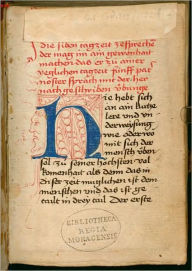 die siben tagzeit
der mag im ain gewonhait
machen das er zu ainer
yeglichen tagzeit fünff pater
noster sprech mit der her
nach geschriben übunge
Hie hebt sich
an ain buche
lere vnd vn
derweisung
wie oder wo
mit sich der
mensch üben
sol zu seiner höchsten vol
komenhait als denn das in
diser zeit muglichen ist dem
menschen vnd das ist ge
tailt in drey tail Der erste
BIBLIOTHECA
REGIA
MONACENSIS